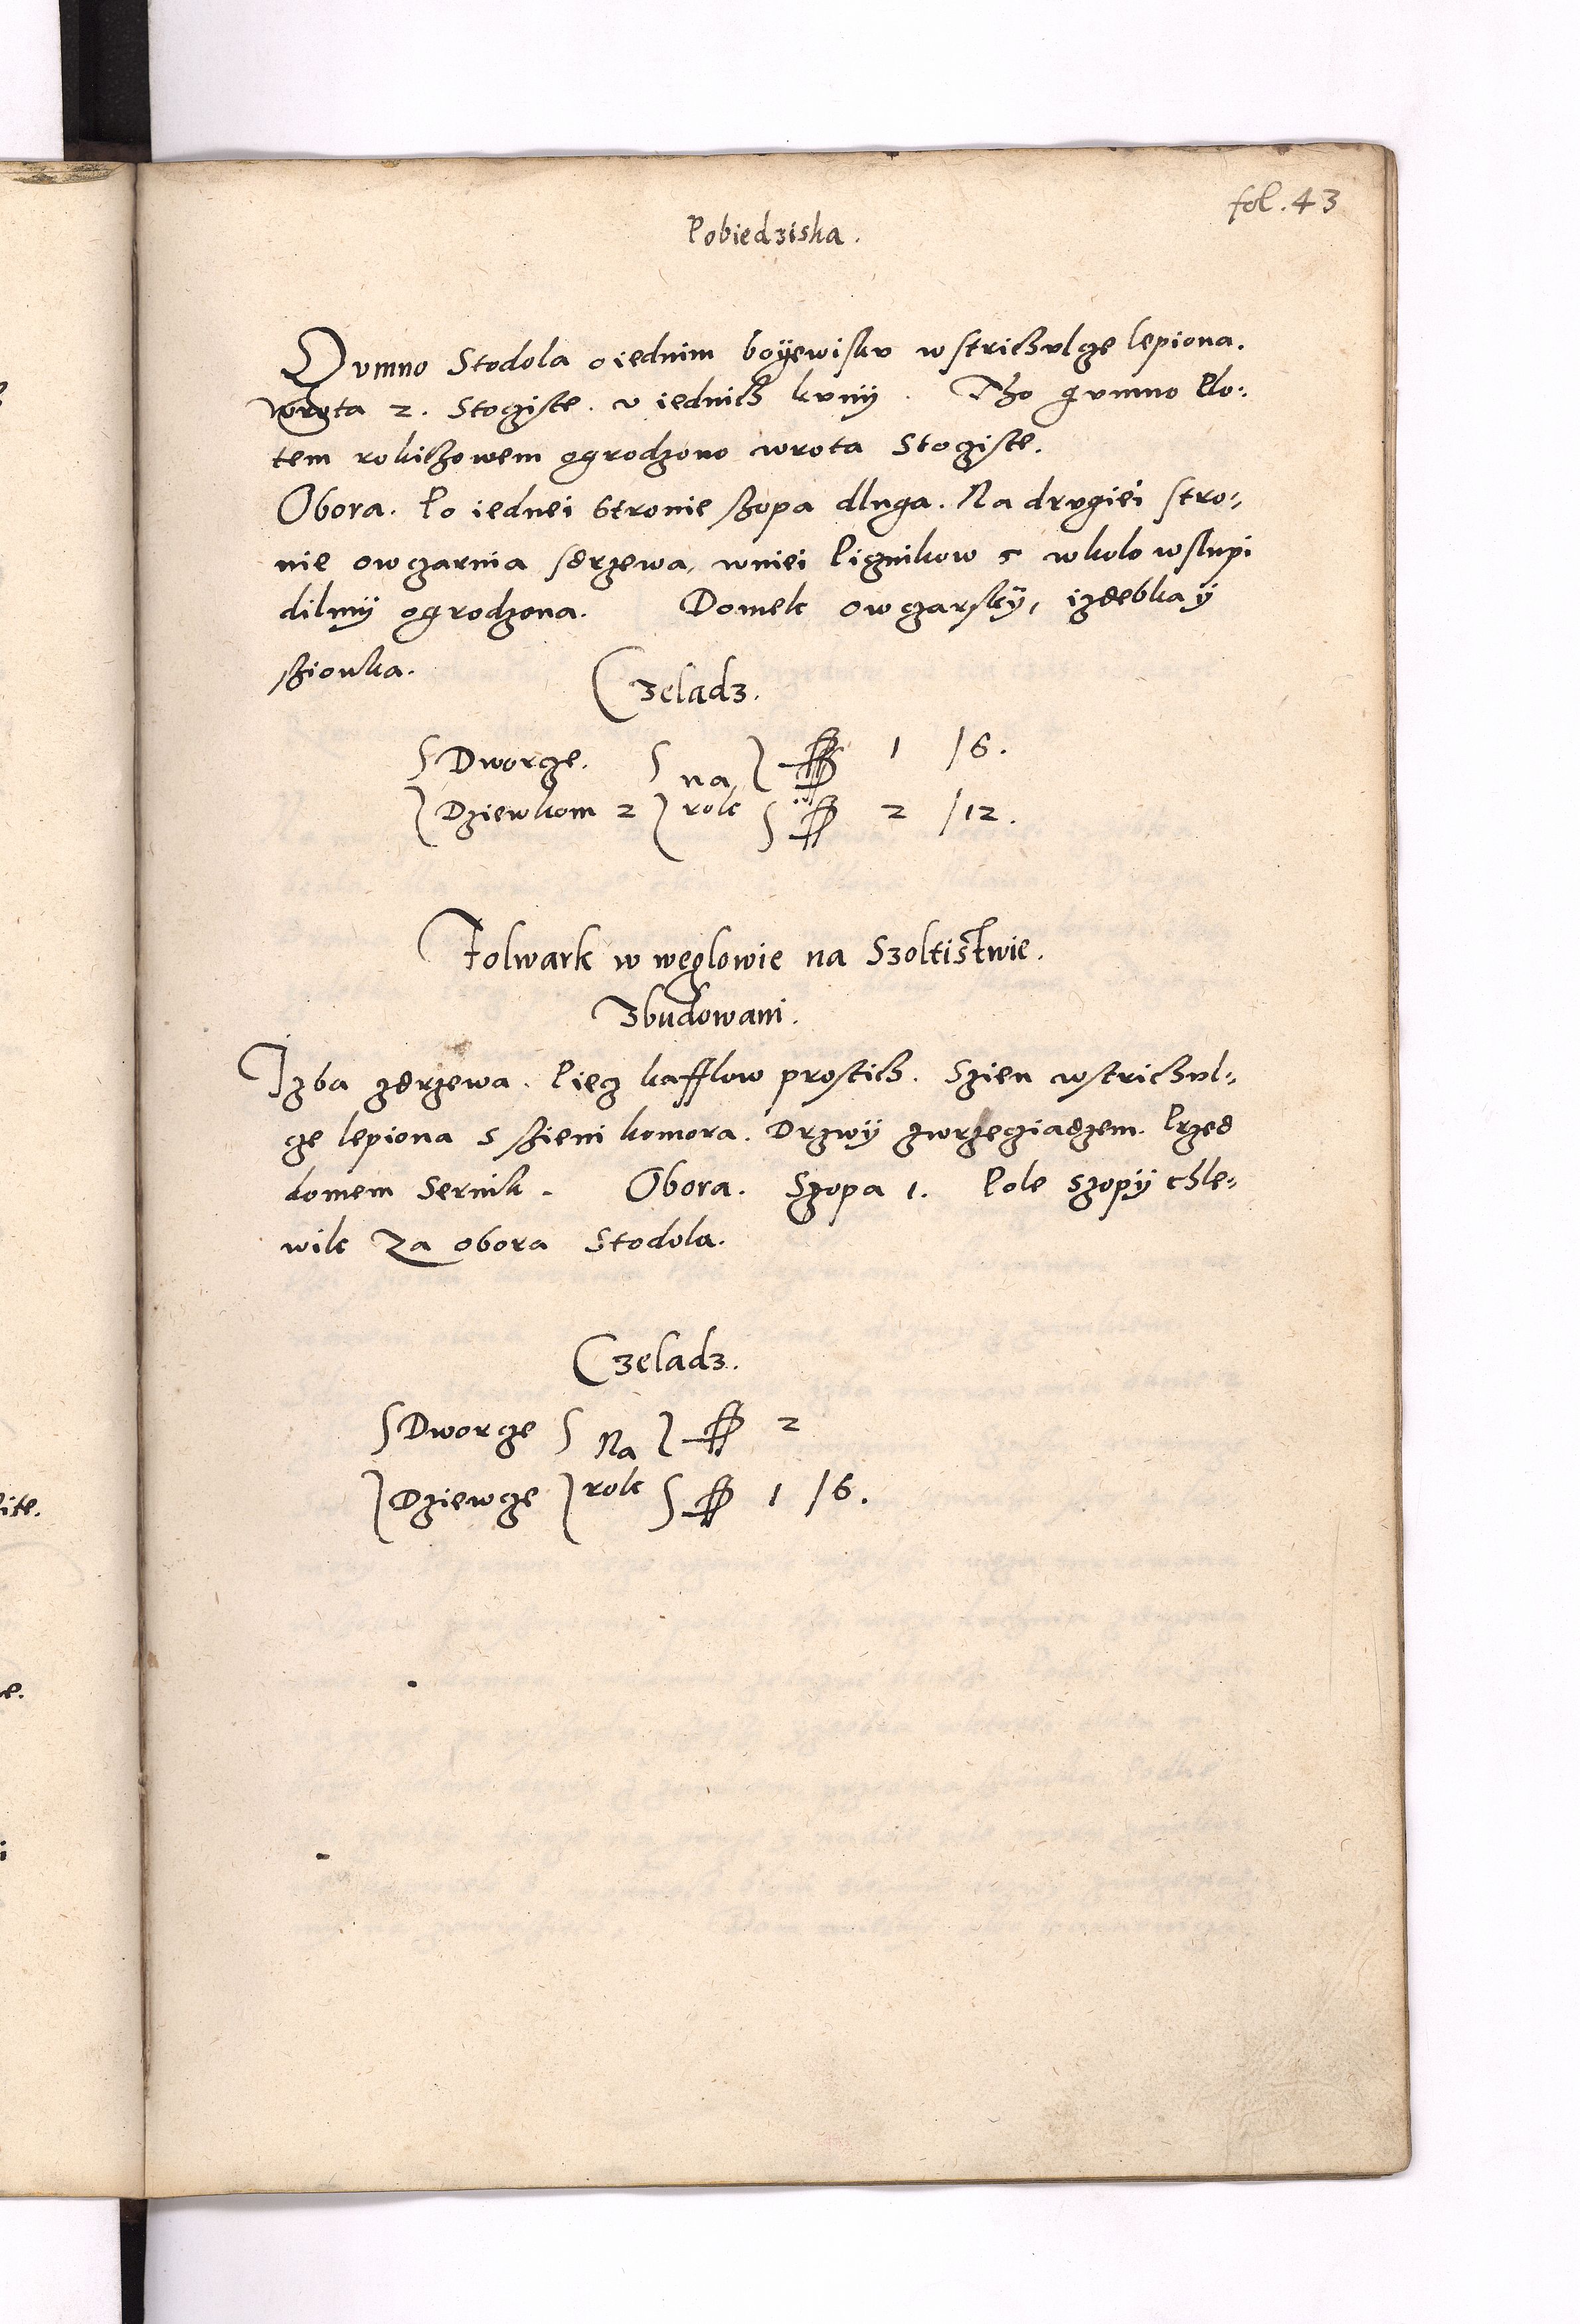 fol. 43
Pobiedziska.
Gvmno Stodola o iednim boÿewiskv w strichvlcze lepiona.
wrota 2. Stocziste. v iednich kvnÿ. Tho gvmno Plo:
tem rokichowem ogrodzono wrota Stocziste.
Obora. Po iednei Stronie szopa dluga. Na drvgiei stro:
nie owczarnia sdrzewa, wniei Picznikow 5 wkolo wslupi
dilmÿ ogrodzona. Domek owczarskÿ, izdebka ÿ
szionka.
Czeladz.
Dworcze. na 1 /6.
Dziewkom 2 rok 2 /12.
Folwark w weglowie na Szoltistwie.
Zbudowani.
Izba zdrzewa. Piecz kafflow prostich. Szien wstrichvl:
cze lepiona s szieni komora. Drzwÿ zwrzecziadzem. Przed
domem Sernik. Obora. Szopa 1. Pole szopÿ chle:
wik Za obora Stodola.
Czeladz.
Dworcze Na 2
Dziewcze rok 1 /6.